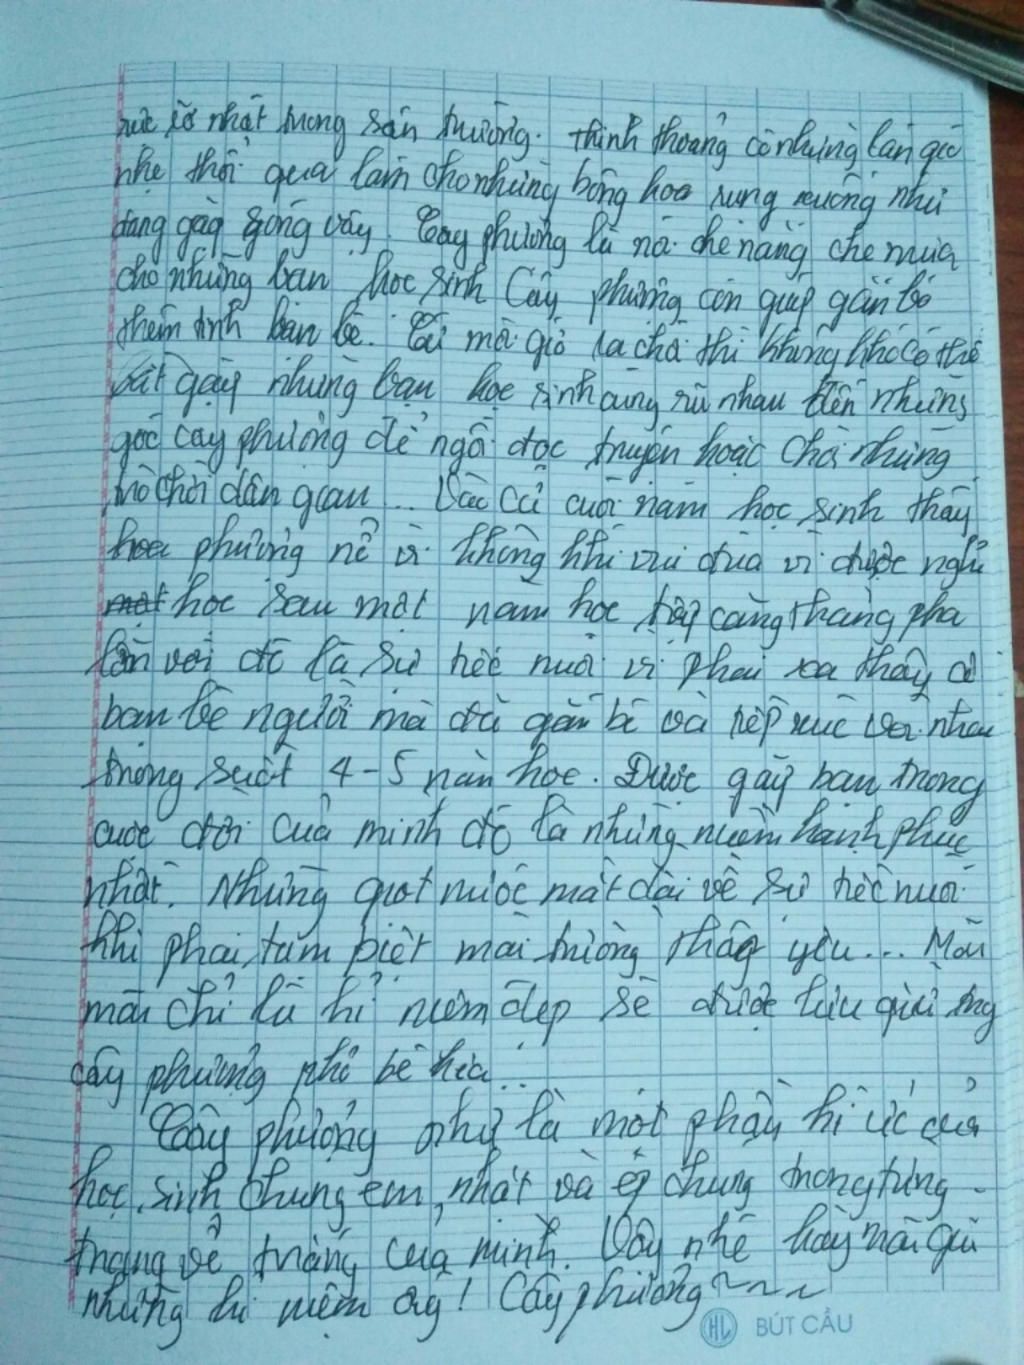 rực rỡ nhất trong sân trường. thỉnh thoảng có những lần gió
nhẹ thổi qua làm cho những bông hoa rung xuống như
đang gặp sóng vậy. Cây phượng là nơi che nắng che mưa
cho những bạn học sinh Cây phượng còn giúp gắn bó
thêm tình bạn bè. Cứ mỗi giờ ra chơi thì không khó có thể
bắt gặp những bạn học sinh cùng rủ nhau đến những
gốc cây phượng để ngồi đọc truyện hoặc chơi những
trò chơi dân gian... Vào cứ cuối năm học sinh thấy
hoa phượng nở vì không khí vui đùa vì được nghỉ
học sau một năm học tập căng thẳng pha
lẫn với đó là sự tiếc nuối vì phải xa thầy cô
bạn bè người mà đã gắn bó và tiếp xúc với nhau
trong suốt 4-5 năm học. Được gặp bạn trong
cuộc đời của mình đó là những niềm hạnh phúc
nhất. Những giọt nước mắt dài về sự tiếc nuối
khi phải tạm biệt mái trường thân yêu... Mãi
mãi chỉ là kỉ niệm đẹp sẽ được lưu giữ trg
cây phượng nhỏ bé kia...
Cây phượng như là một phần kí ức của
học sinh chúng em, nhặt và ép chúng trong từng
trang vở trắng của mình. Vậy nhé hãy mãi giữ
những kỉ niệm ấy! Cây phượng ~ ~ ~
HL BÚT CẦU